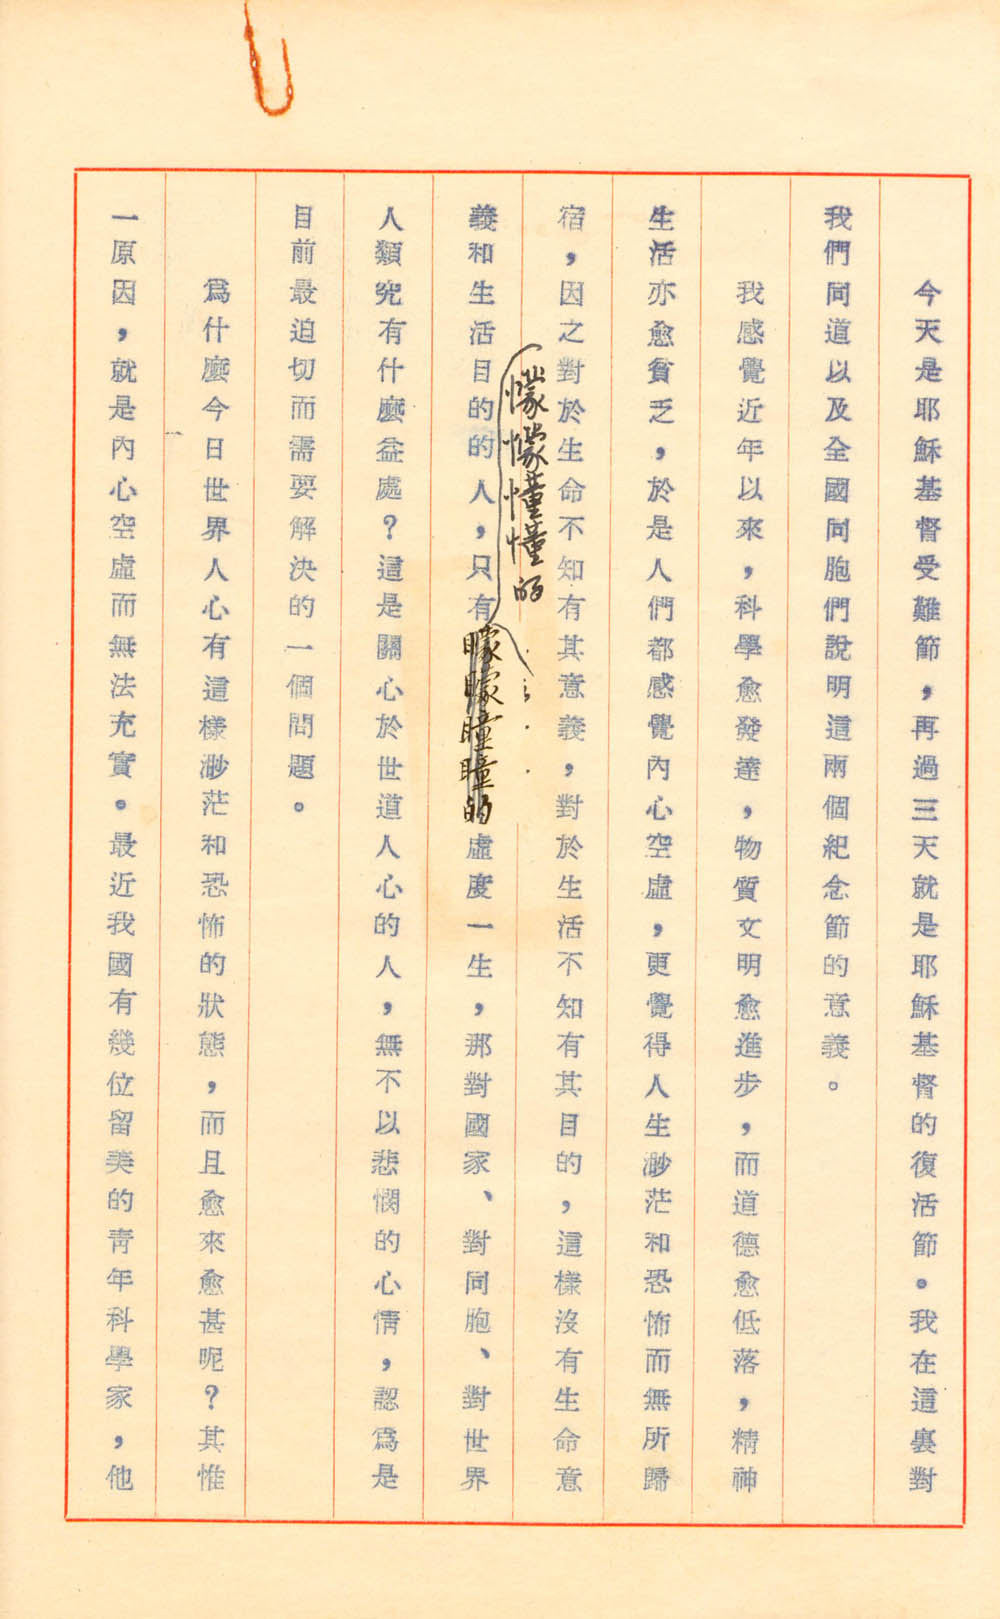 今天是耶穌基督受難節，再過三天就是耶穌基督的復活節。我在這裏對
我們同道以及全國同胞們說明這兩個紀念節的意義。
我感覺近年以來，科學愈發達，物質文明愈進步，而道德愈低落，精神
生活亦愈貧乏，於是人們都感覺內心空虛，更覺得人生渺茫和恐怖而無所歸
宿，因之對於生命不知有其意義，對於生活不知有其目的，這樣沒有生命意
懞懞懂懂的
義和生活目的的人，只有矇矇瞳瞳的虛度一生，那對國家、對同胞、對世界
人類究有什麼益處？這是關心於世道人心的人，無不以悲憫的心情，認為是
目前最迫切而需要解決的一個問題。
為什麼今日世界人心有這樣渺茫和恐怖的狀態，而且愈來愈甚呢？其惟
一原因，就是內心空虛而無法充實。最近我國有幾位留美的青年科學家，他